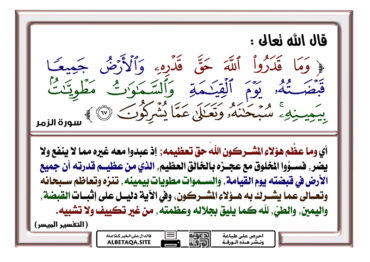 قال الله تعالى :
﴿ وَمَا قَدَرُوا۟ ٱللَّهَ حَقَّ قَدْرِهِۦ وَٱلْأَرْضُ جَمِيعًا
قَبْضَتُهُۥ يَوْمَ ٱلْقِيَٰمَةِ وَٱلسَّمَٰوَٰتُ مَطْوِيَّٰتٌۢ
بِيَمِينِهِۦ ۚ سُبْحَٰنَهُۥ وَتَعَٰلَىٰ عَمَّا يُشْرِكُونَ ٦٧ ﴾ سورة الزمر
أي وما عظَّم هؤلاء المشركون الله حق تعظيمه؛ إذ عبدوا معه غيره مما لا ينفع ولا
يضر، فسوَّوا المخلوق مع عجزه بالخالق العظيم، الذي من عظيم قدرته أن جميع
الأرض في قبضته يوم القيامة، والسموات مطويات بيمينه، تنزه وتعاظم سبحانه
وتعالى عما يشرك به هؤلاء المشركون، وفي الآية دليل على إثبات القبضة،
واليمين، والطيِّ، لله كما يليق بجلاله وعظمته، من غير تكييف ولا تشبيه.
( التفسير الميسر )
احرص على طباعة
ونشر هذه الورقة
ALBETAQA.SITE